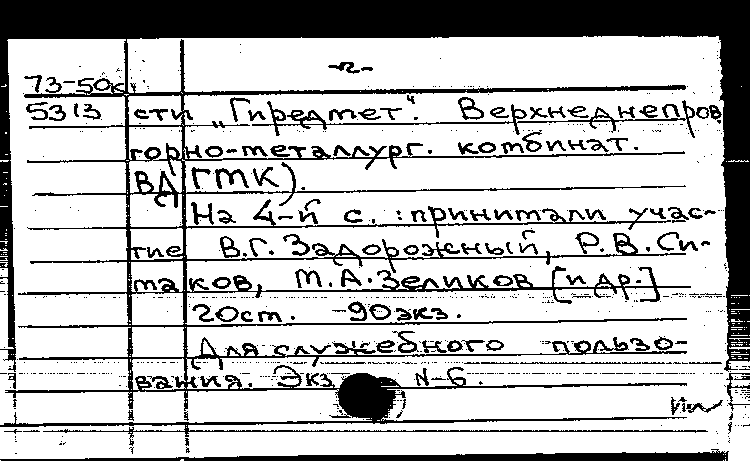 -2-
73-50к
5313 сти „Гиредмет“. Верхнеднепров
горно-металлург. комбинат.
ВДГМК).
На 4-й с. : принимали учас-
тие В.Г. Задорожный, Р.В. Си-
маков, М.А. Зеликов [и др.]
20ст. -90экз.
Для служебного пользо-
вания. Экз N-6.